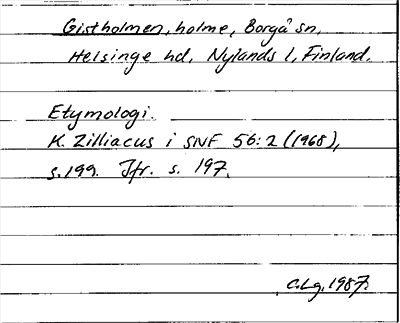 Gistholmen, holme, Borgå sn,
Helsinge hd, Nylands l, Finland.
Etymologi.
K. Zilliacus i SNF 56:2 (1968),
s.199. Jfr. s. 197.
C.Lg. 1987.